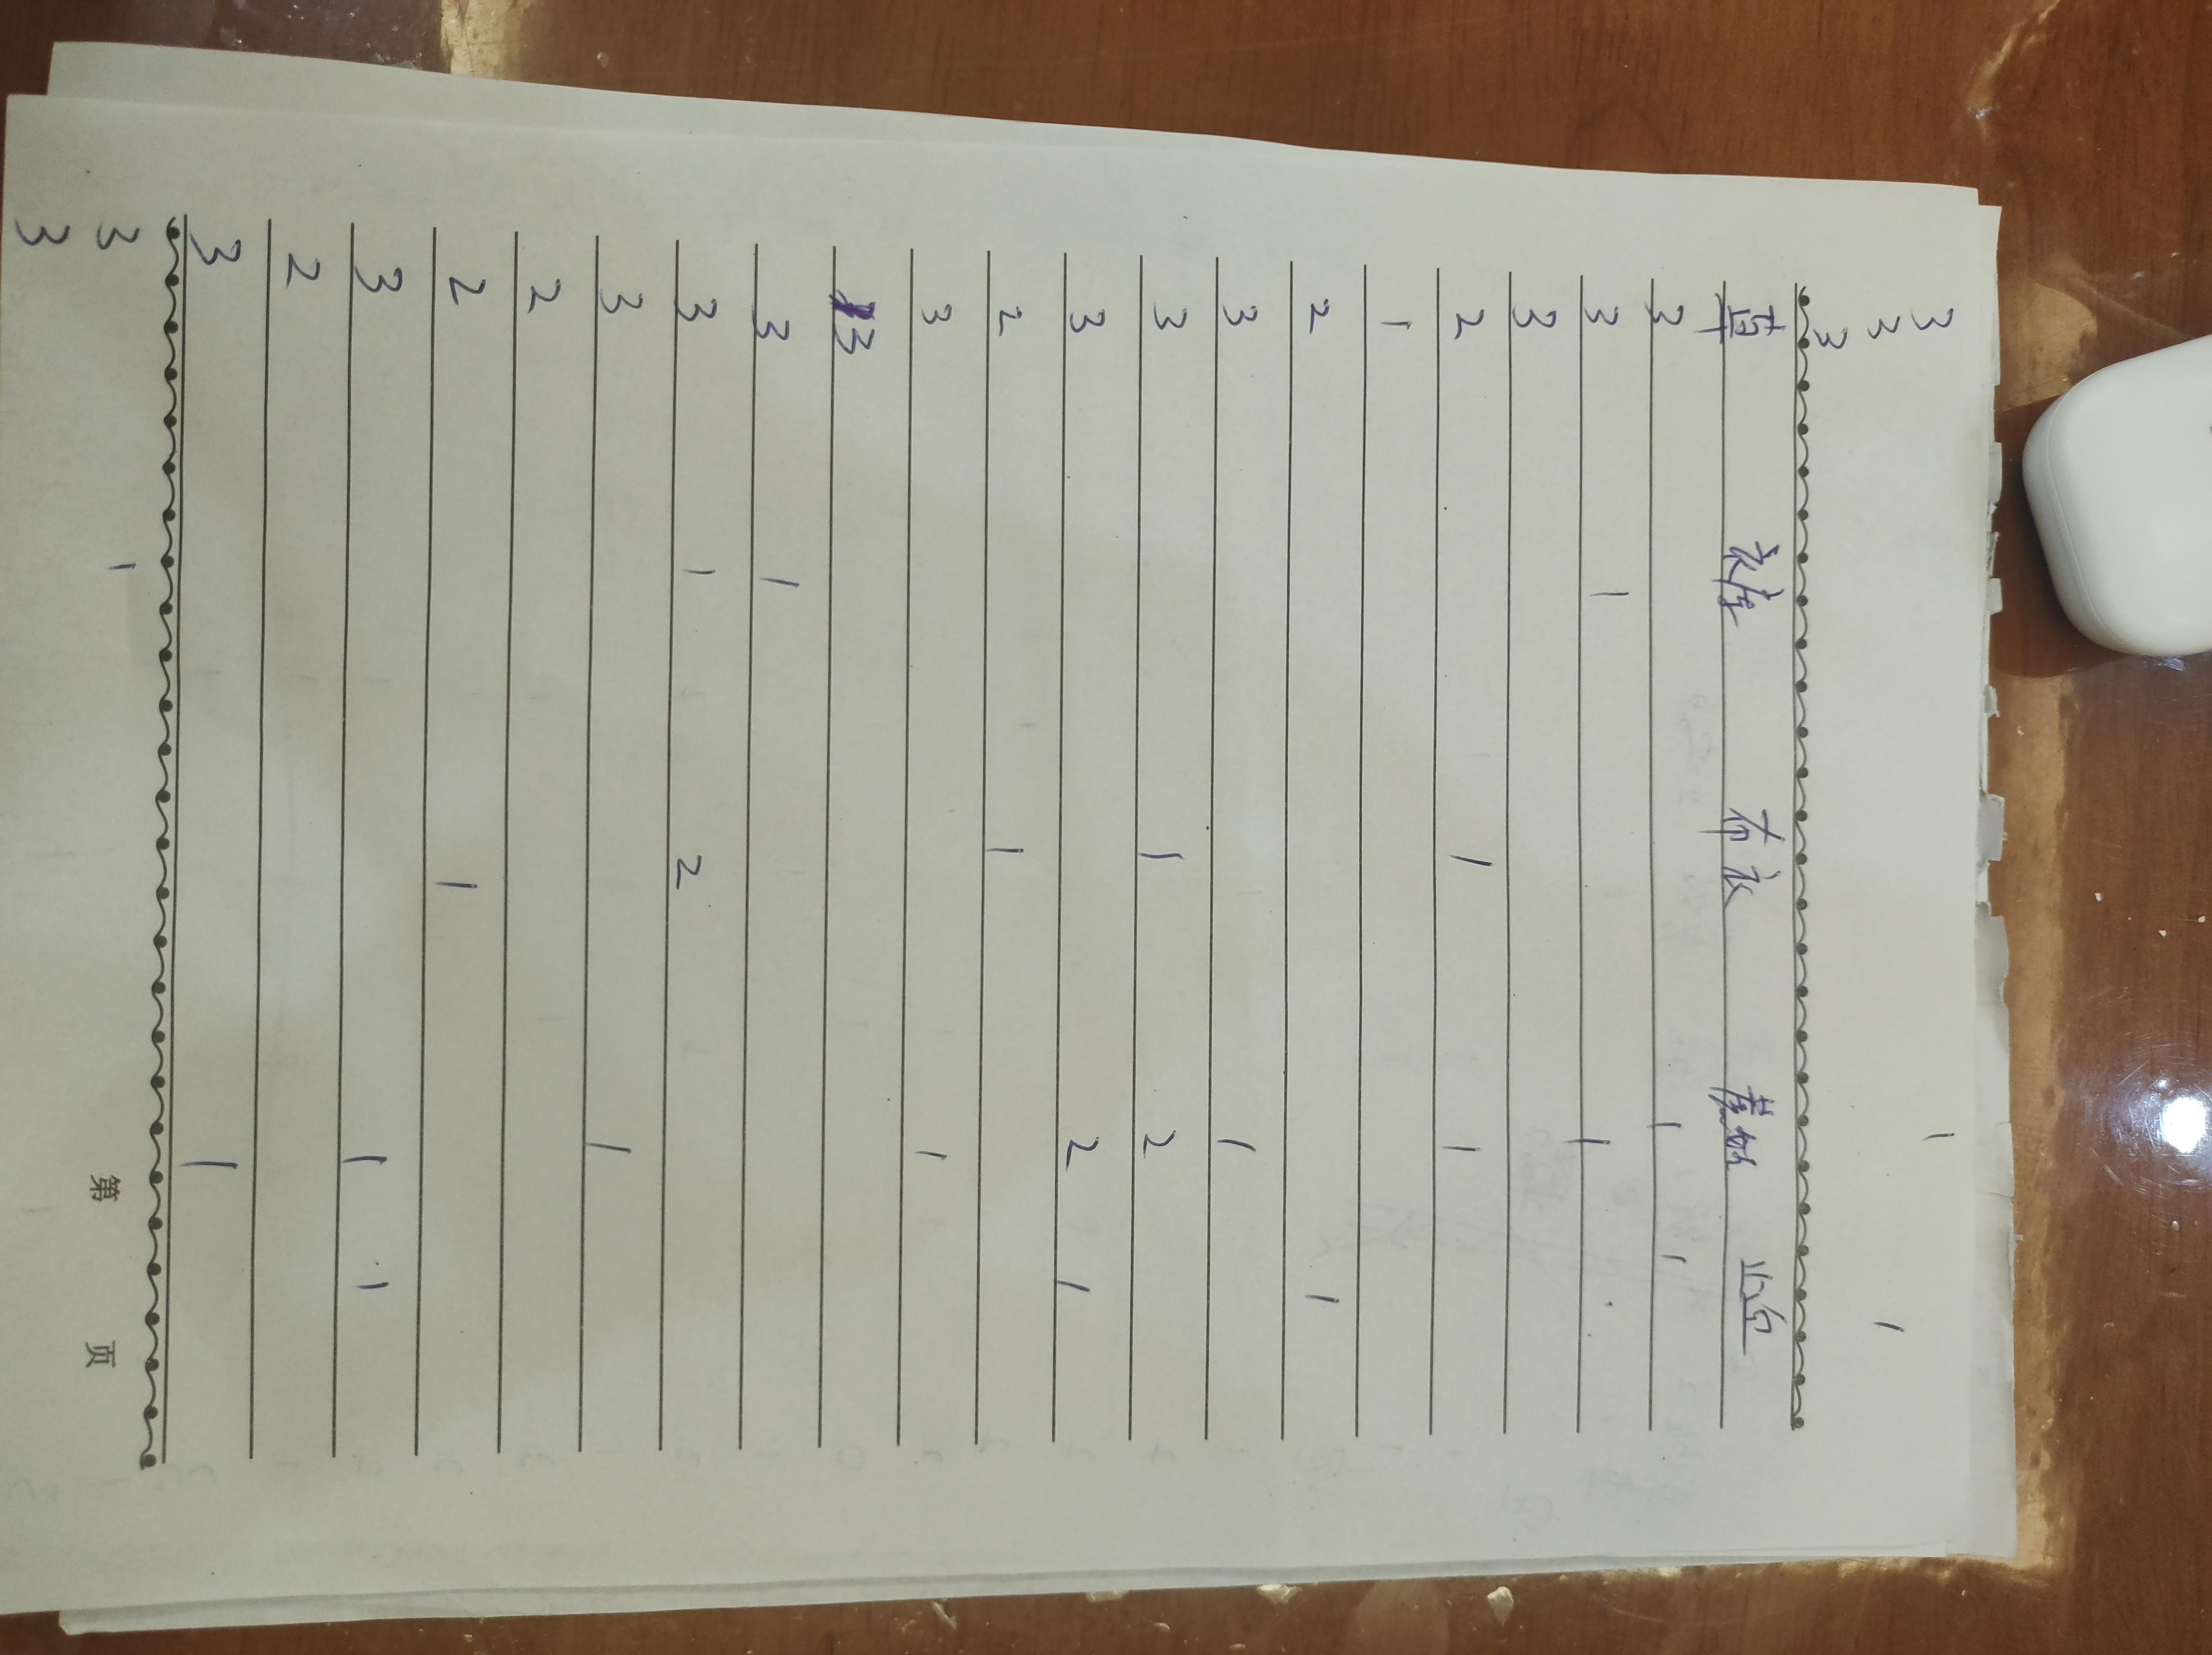 3 1
3 1
3
布衣
3 1 1
3 1 1
3
2 1 1
1
2 1
3 1
3 1 2
3 2 1
2 1
3 1
3
3 1
3 1 2
3 1
2
2 1
3 1 1
2
3 1
3 1
第 页
3